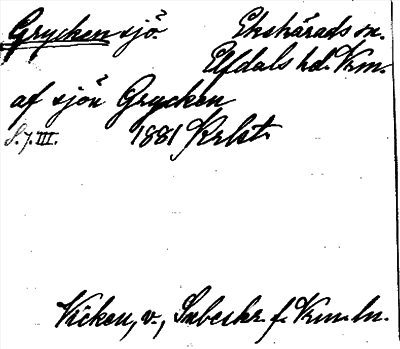 Grycken sjö. Ekshärads sn.
Elfdals hd. Vrm.
af sjön Grycken
S. 7. III. 1881 Krlst.
Vicken, v., Inbeskr. f. Vrm. ln.